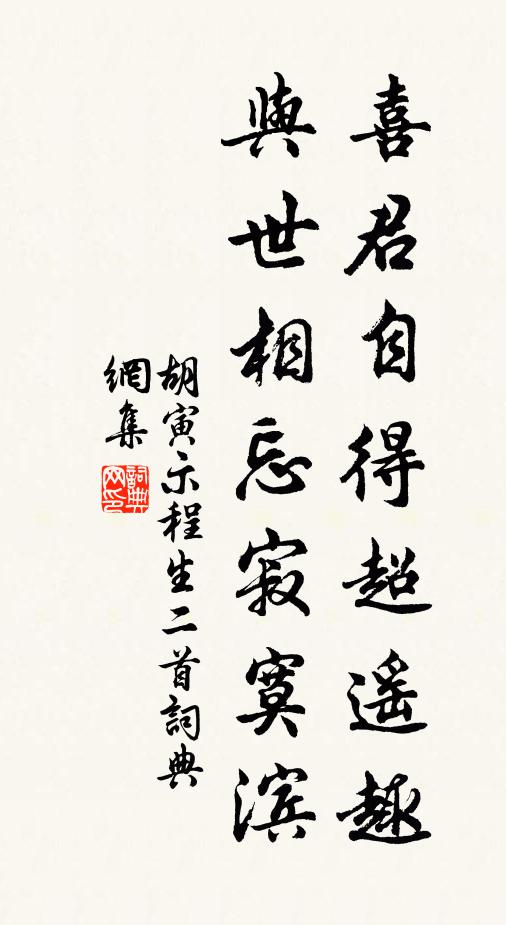 喜君自得超遥趣
與世相忘寂寞滨
胡寅示程生二首詞典
網集
詞典網印